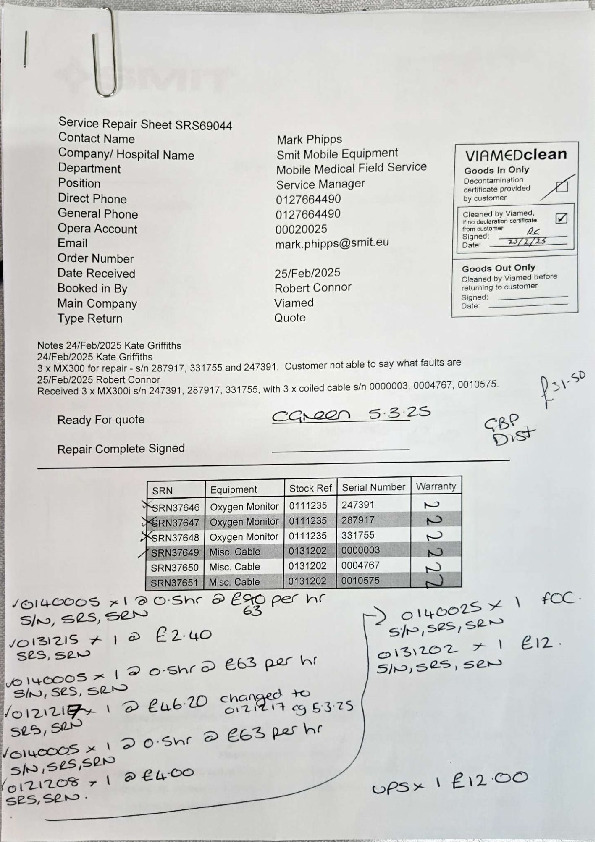 Service Repair Sheet SRS69044
Contact Name Mark Phipps
Company/ Hospital Name Smit Mobile Equipment
Department Mobile Medical Field Service
Position Service Manager
Direct Phone 0127664490
General Phone 0127664490
Opera Account 00020025
Email mark.phipps@smit.eu
Order Number
Date Received 25/Feb/2025
Booked in By Robert Connor
Main Company Viamed
Type Return Quote
VIAMEDclean
Goods In Only
Decontamination
certificate provided
by customer
Cleaned by Viamed,
if no declaration certificate
from customer
Signed: RC
Date: 25/2/25
Goods Out Only
Cleaned by Viamed before
returning to customer
Signed:
Date:
Notes 24/Feb/2025 Kate Griffiths
24/Feb/2025 Kate Griffiths
3 x MX300 for repair - s/n 287917, 331755 and 247391. Customer not able to say what faults are
25/Feb/2025 Robert Connor
Received 3 x MX300i s/n 247391, 287917, 331755, with 3 x coiled cable s/n 0000003, 0004767, 0010575.
£31.50
Ready For quote CGreen 5.3.25
GBP
Dist
Repair Complete Signed
SRN Equipment Stock Ref Serial Number Warranty
SRN37646 Oxygen Monitor 0111235 247391 N
SRN37647 Oxygen Monitor 0111235 287917 N
SRN37648 Oxygen Monitor 0111235 331755 N
SRN37649 Misc. Cable 0131202 0000003 N
SRN37650 Misc. Cable 0131202 0004767 N
SRN37651 Misc. Cable 0131202 0010575 N
✓0140005 x 1 @ 0.5hr @ £90 per hr
63
S/N, SRS, SRN
✓0131215 x 1 @ £2.40
SRS, SRN
✓0140005 x 1 @ 0.5hr @ £63 per hr
S/N, SRS, SRN
✓0121217 x 1 @ £46.20 changed to
0121217 cg 5.3.25
SRS, SRN
✓0140005 x 1 @ 0.5hr @ £63 per hr
S/N, SRS, SRN
✓0121208 x 1 @ £4.00
SRS, SRN.
0140025 x 1 FOC.
S/N, SRS, SRN
0131202 x 1 £12.
S/N, SRS, SRN
UPS x 1 £12.00